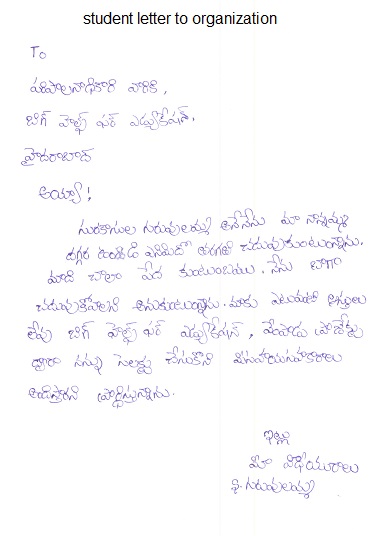 student letter to organization
To
పరిపాలనాధికారి వారికి,
బిగ్ హెల్ప్ ఫర్ ఎడ్యుకేషన్.
హైదరాబాద్
అయ్యా!
సురకాసుల గురువులమ్మ అనేనేను మా నాన్నమ్మ
దగ్గర ఉండి ఎనిమిదో తరగతి చదువుకుంటున్నాను.
మాది చాలా పేద కుటుంబము. నేను బాగా
చదువుకోవాలని అనుకుంటున్నాను. మాకు ఎటువంటి ఆస్తులు
లేవు బిగ్ హెల్ప్ ఫర్ ఎడ్యుకేషన్, వేంపాడు ప్రాజెక్టు
ద్వారా నన్ను సెలక్టు చేసుకొని మీసహాయసహకారాలు
అందిస్తారని ప్రార్థిస్తున్నాను.
ఇట్లు
మీ విధేయురాలు
గురువులమ్మ